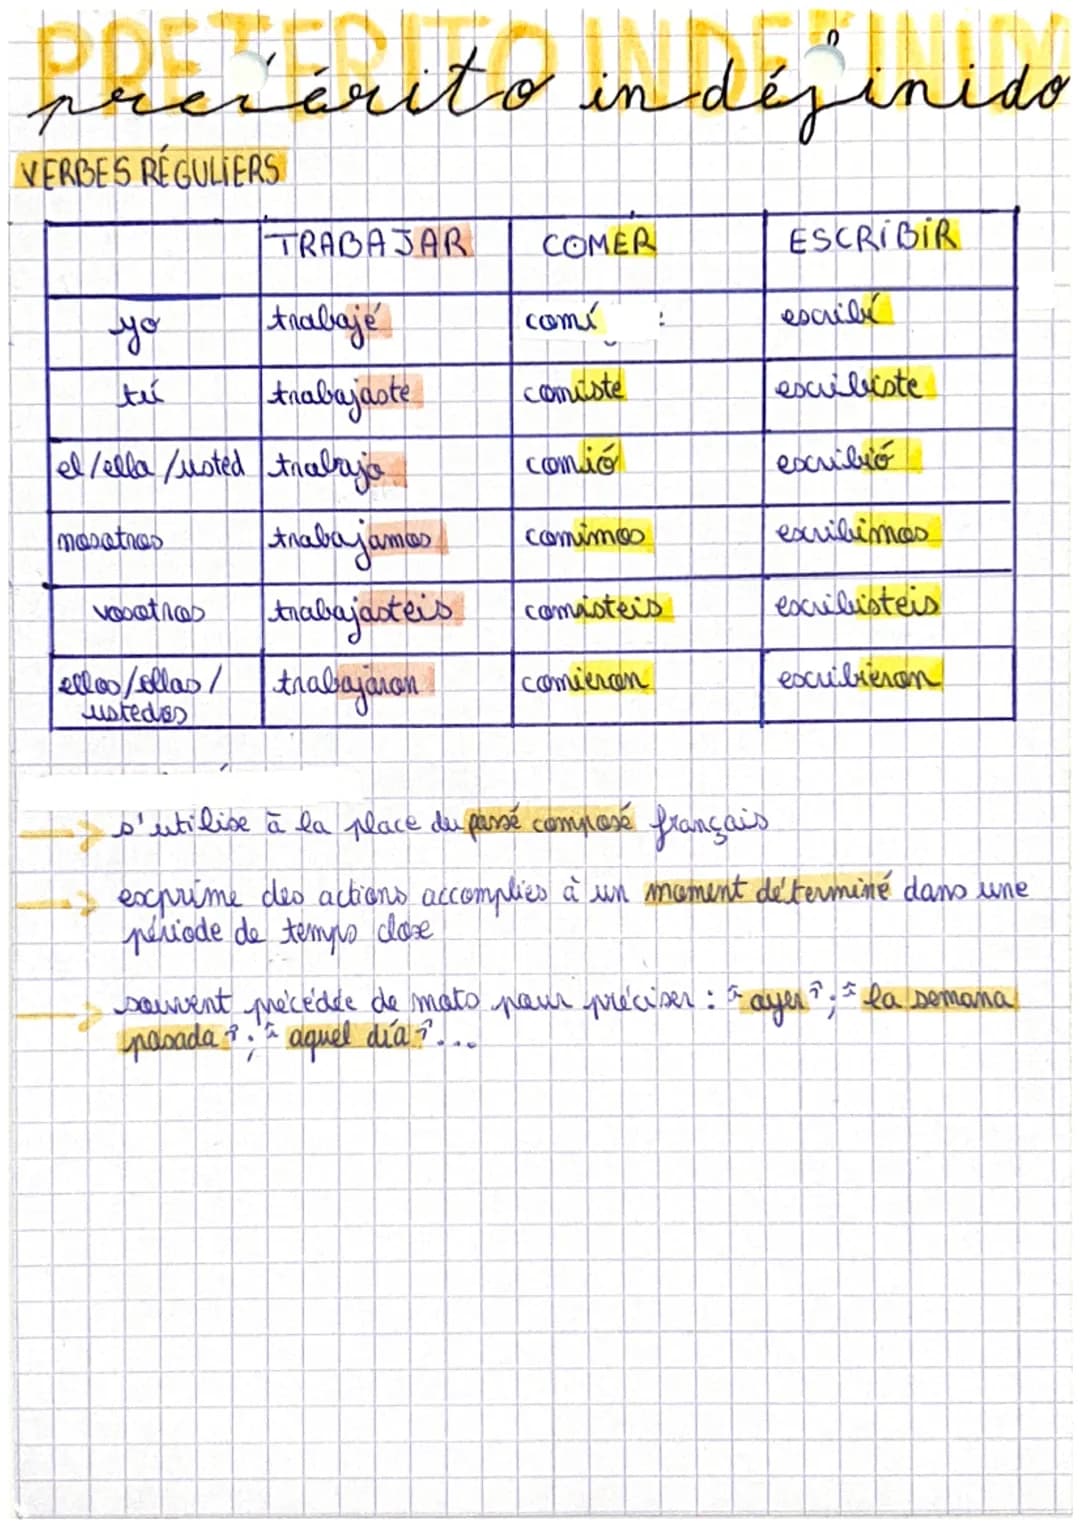 PRETERITO INDEFINIDO
prétérito indéfinido
VERBES RÉGULIERS
TRABAJAR COMER ESCRIBIR
yo trabajé comí : escribí
tú trabajaste comiste escribiste
el/ella/usted trabajo comió escribió
nosotros trabajamos comimos escribimos
vosotros trabajasteis comisteis escribisteis
ellos/ellas/ trabajaron comieron escribieron
ustedes
→ s'utilise à la place du passé composé français
→ exprime des actions accomplies à un moment déterminé dans une
période de temps close
→ souvent précédée de mots pour préciser : "ayer"; "la semana
pasada"; "aquel día"...